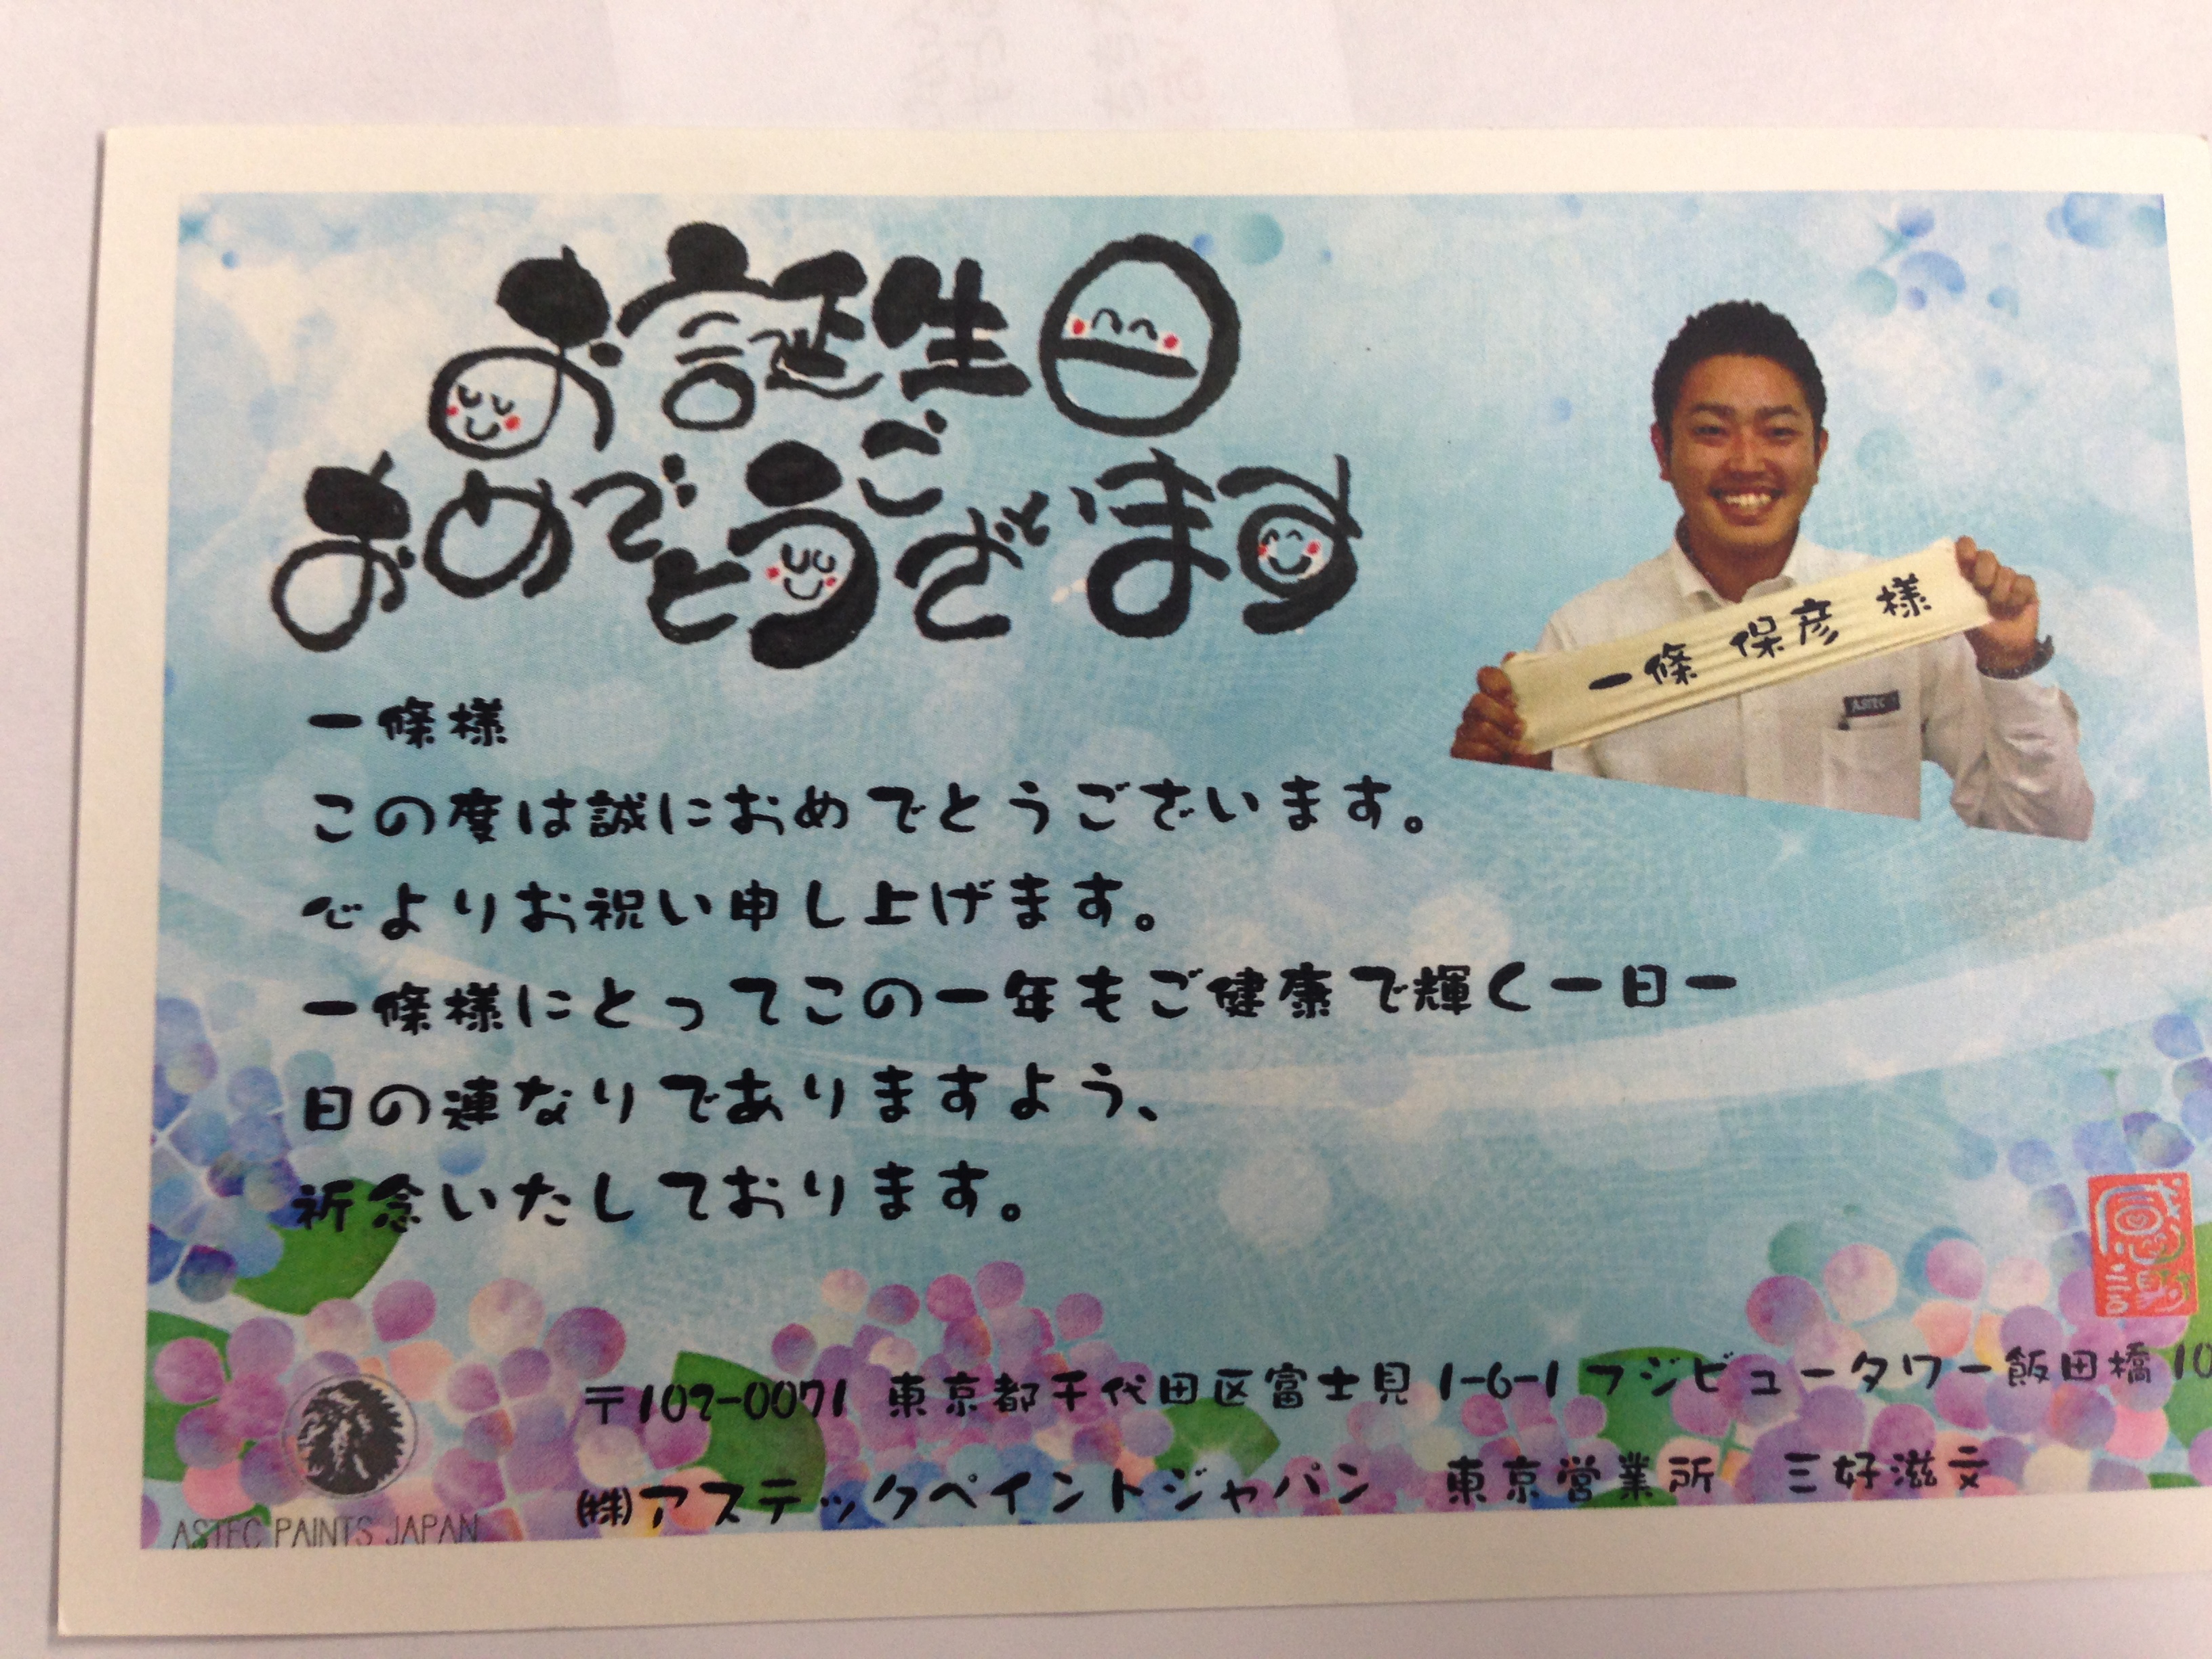 お誕生日
おめでとうございます
一條 保彦 様
ASTEC
一條様
この度は誠におめでとうございます。
心よりお祝い申し上げます。
一條様にとってこの一年もご健康で輝く一日一
日の連なりでありますよう、
祈念いたしております。
感謝
〒102-0071 東京都千代田区富士見 1-6-1 フジビュータワー飯田橋 10
㈱アステックペイントジャパン 東京営業所 三好滋文
ASTEC PAINTS JAPAN